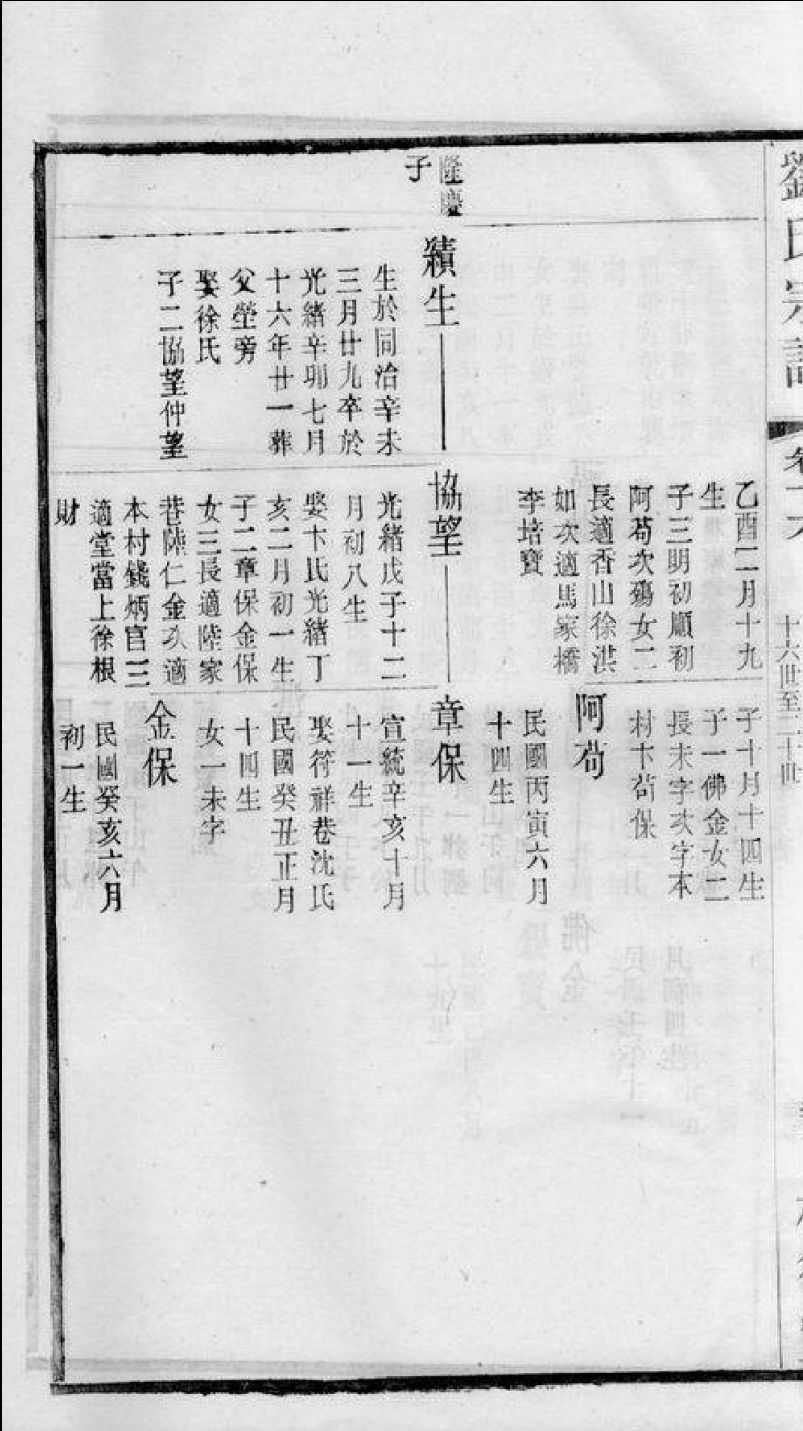 劉氏宗譜
十六世至二十世
乙酉二月十九
生
子三明初順初
阿苟次殤女二
長適香山徐洪
如次適馬家橋
李培寶
子十月十四生
子一佛金女二
長未字次字本
村卞苟保
阿苟
民國丙寅六月
十四生
隆慶
子
績生
生於同治辛未
三月廿九卒於
光緒辛卯七月
十六年廿一葬
父塋旁
娶徐氏
子二協望仲望
協望
光緒戊子十二
月初八生
娶卞氏光緒丁
亥二月初一生
子二章保金保
女三長適陸家
巷陸仁金次適
本村錢炳官三
適堂當上徐根
財
章保
宣統辛亥十月
十一生
娶符祥巷沈氏
民國癸丑正月
十四生
女一未字
金保
民國癸亥六月
初一生